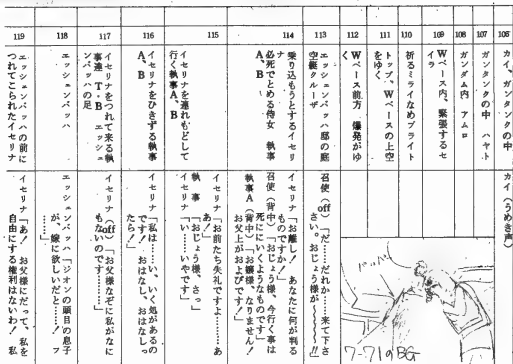 106
カイ、ガンタンクの中
カイ(うめき声)
107
ガンタンクの中 ハヤト
108
ガンダム内 アムロ
109
Wベース内、緊張するセ
イラ
110
祈るミライなめブライト
111
トップ、Wベースの上空
をゆく
112
Wベース前方 爆発がゆ
く
113
エッシェンバッハ邸の庭
空艇クルーザ
召使(off)「だ……だれか……来て下さ
さい。おじょう様が〜〜〜〜!!
114
乗り込もうとするイセリ
ナ
必死でとめる侍女 執事
A、B
イセリナ「お離し! あなたに何が判る
ものですか!」
召使(背中)「おじょう様、今行く事は
死ににいくようなものです!」
執事A(背中)「お嬢様、なりません!
お父上がおよびです!」
115
イセリナを連れもどして
行く執事A、B
イセリナ「お前たち失礼ですよ……あ
あ!」
執事「おじょう様、さっ」
イセリナ「い……いやです」
116
イセリナをひきずる執事
A、B
イセリナ「私は……い、いく処があるの
です! おはなし、おはなしっ
たら!」
117
イセリナをつれて来る執
事達 T・B エッシェ
ンバッハの足
イセリナ(off)「お父様なぞに私がなに
もないのです……」
118
エッシェンバッハ
エッシェンバッハ「ジオンの頭目の息子
が、嫁に欲しいだと……! フ
……」
119
エッシェンバッハの前に
つれてこられたイセリナ
イセリナ「あ! お父様にだって、私を
自由にする権利はないわ! 私
7-71のBG